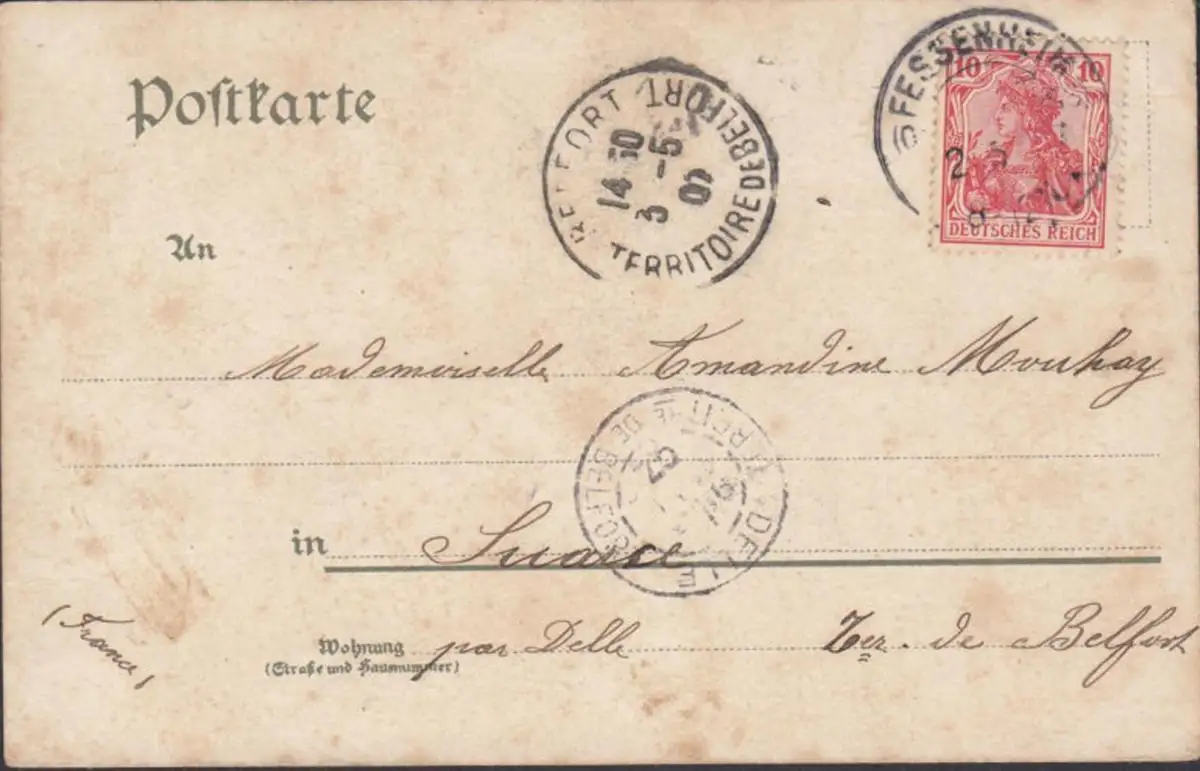 Postkarte
FESSENHEIM
10 10
2 5
8
DEUTSCHES REICH
BELFORT
14 50
3 -5
07
TERRITOIRE DE BELFORT
An
Mademoiselle Amandine Mouhay
DELLE
DE BELFORT
in Suarce
Wohnung par Delle Ter. de Belfort
(Straße und Hausnummer)
(France)